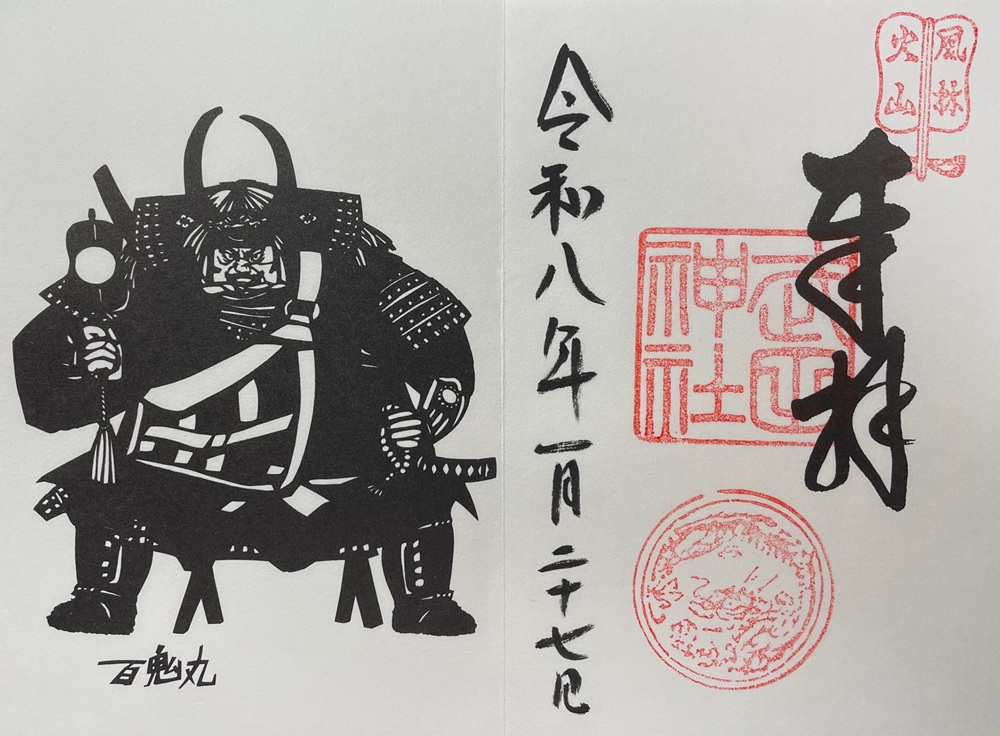 風林
火山
奉拝
武田
神社
令和八年一月二十七日
百鬼丸